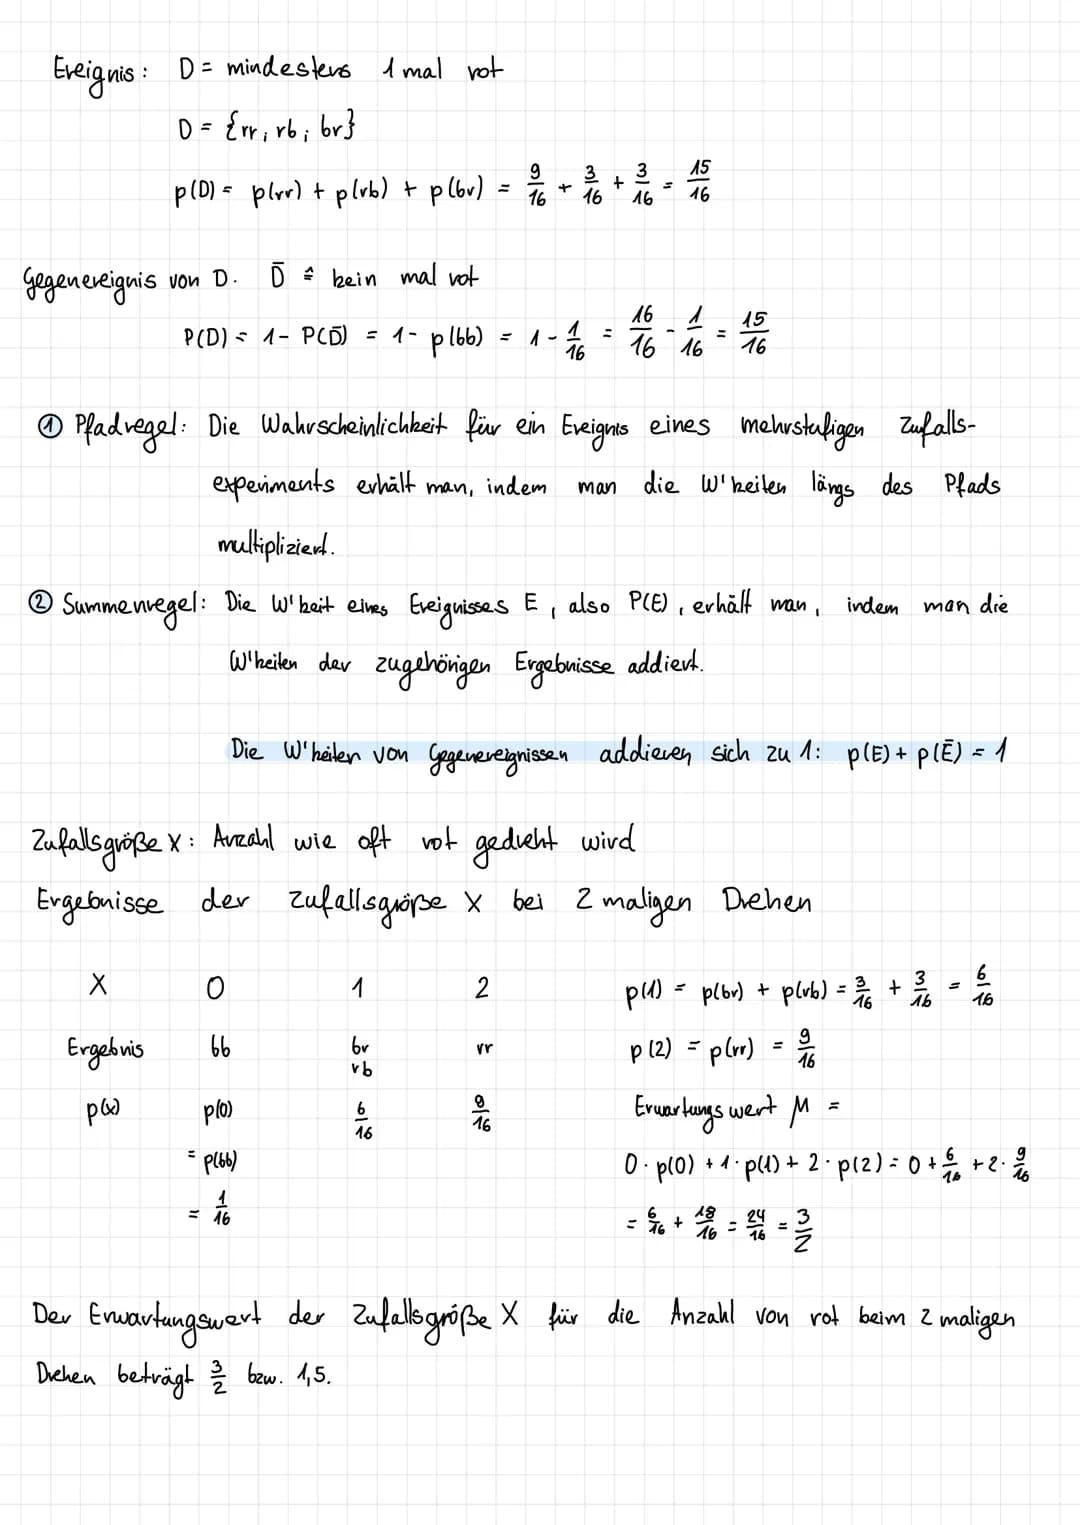 Ereignis: D = mindestens 1 mal rot
D = {rr; rb; br}
p(D) = p(rr) + p(rb) + p(br) = 9/16 + 3/16 + 3/16 = 15/16
Gegenereignis von D. D̄ ≙ kein mal rot
P(D) = 1 - P(D̄) = 1 - p(bb) = 1 - 1/16 = 16/16 - 1/16 = 15/16
① Pfadregel: Die Wahrscheinlichkeit für ein Ereignis eines mehrstufigen Zufalls-
experiments erhält man, indem man die W'keiten längs des Pfads
multipliziert.
② Summenregel: Die W'keit eines Ereignisses E, also P(E), erhält man, indem man die
W'keiten der zugehörigen Ergebnisse addiert.
Die W'keiten von Gegenereignissen addieren sich zu 1: p(E) + p(Ē) = 1
Zufallsgröße X: Anzahl wie oft rot gedreht wird
Ergebnisse der Zufallsgröße X bei 2 maligen Drehen
X 0 1 2 p(1) = p(br) + p(rb) = 3/16 + 3/16 = 6/16
Ergebnis bb br rr p(2) = p(rr) = 9/16
rb
p(x) p(0) 6/16 9/16 Erwartungswert μ =
= p(bb) 0 · p(0) + 1 · p(1) + 2 · p(2) = 0 + 6/16 + 2 · 9/16
= 1/16 = 6/16 + 18/16 = 24/16 = 3/2
Der Erwartungswert der Zufallsgröße X für die Anzahl von rot beim 2 maligen
Drehen beträgt 3/2 bzw. 1,5.